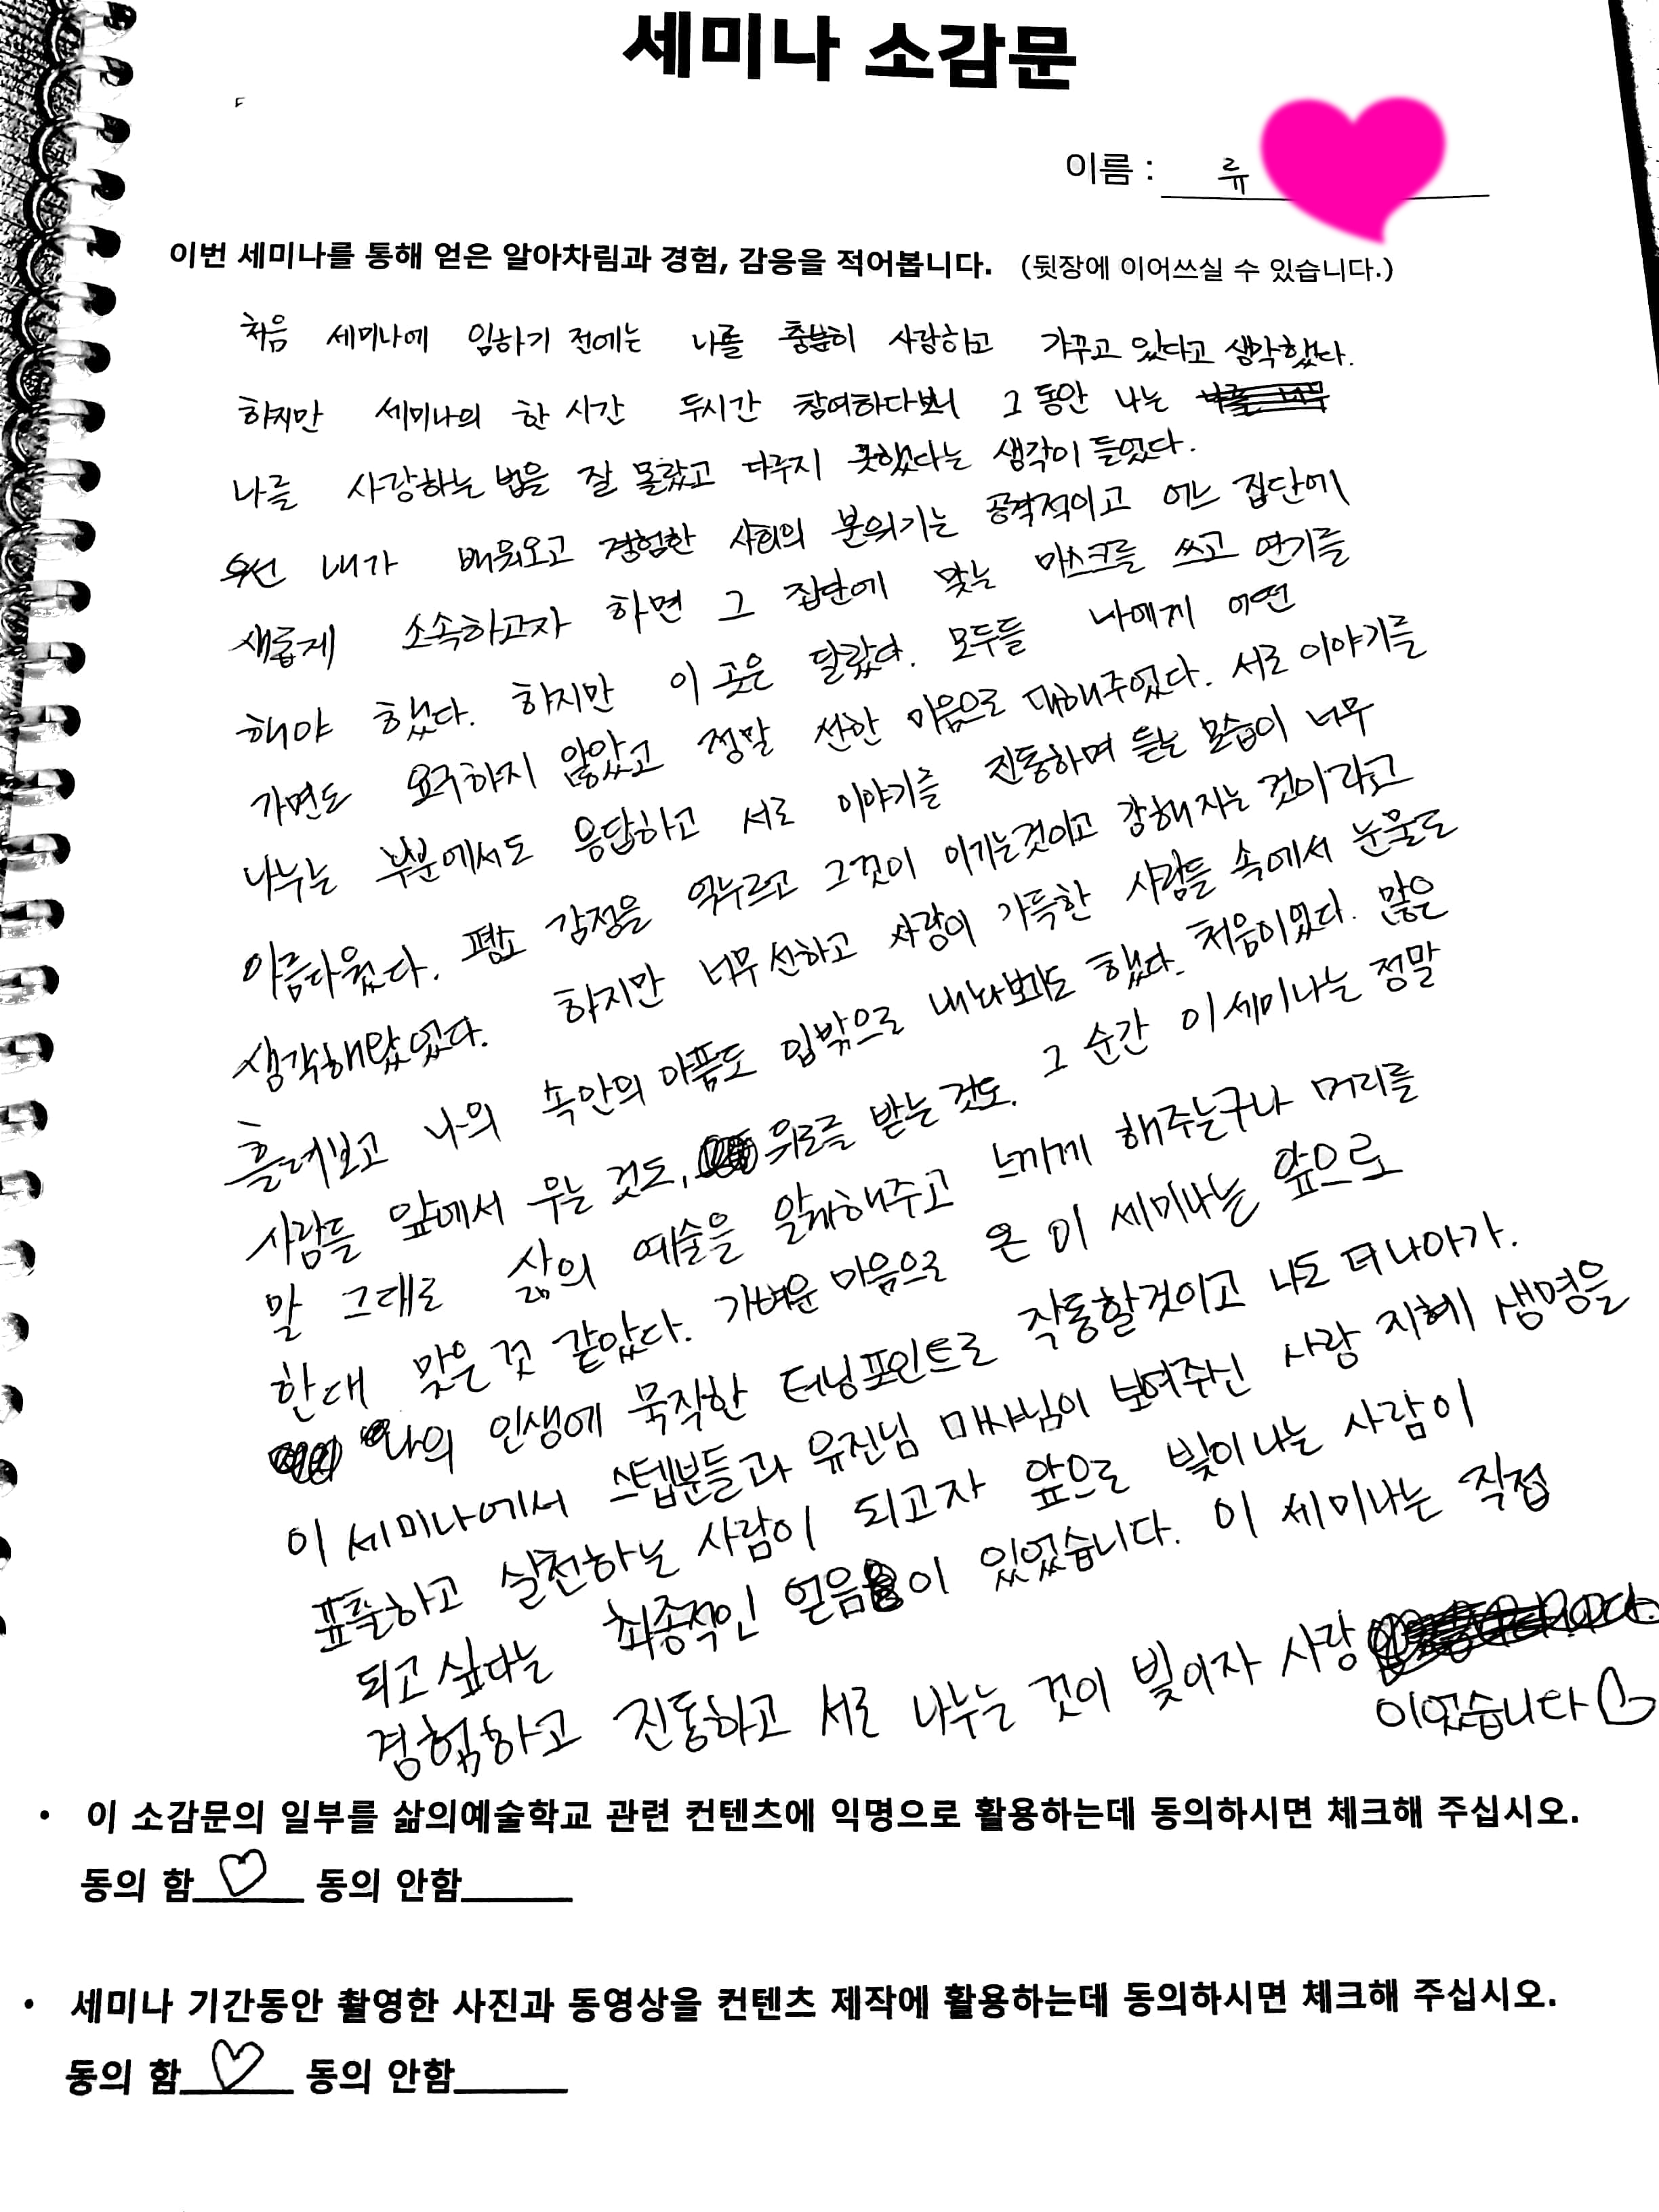 세미나 소감문
이름 : 류
이번 세미나를 통해 얻은 알아차림과 경험, 감응을 적어봅니다. (뒷장에 이어쓰실 수 있습니다.)
처음 세미나에 임하기 전에는 나를 충분히 사랑하고 가꾸고 있다고 생각했다.
하지만 세미나의 한 시간 두시간 참여하다보니 그 동안 나는
나를 사랑하는 법을 잘 몰랐고 다루지 못했다는 생각이 들었다.
우선 내가 배워오고 경험한 사회의 분위기는 공격적이고 어느 집단에
새롭게 소속하고자 하면 그 집단에 맞는 마스크를 쓰고 연기를
해야 했다. 하지만 이 곳은 달랐다. 모두들 나에게 어떤
가면도 요구하지 않았고 정말 선한 마음으로 대해주었다. 서로 이야기를
나누는 부분에서도 응답하고 서로 이야기를 진동하며 듣는 모습이 너무
아름다웠다. 평소 감정을 억누르고 그것이 이기는것이고 강해지는 것이라고
생각해왔었다. 하지만 너무 선하고 사랑이 가득한 사람들 속에서 눈물도
흘려보고 나의 속안의 아픔도 입밖으로 내놔보기도 했다. 처음이었다. 많은
사람들 앞에서 우는 것도, 위로를 받는 것도. 그 순간 이 세미나는 정말
말 그대로 삶의 예술을 알게해주고 느끼게 해주는구나 머리를
한대 맞은 것 같았다. 가벼운 마음으로 온 이 세미나는 앞으로
나의 인생에 묵직한 터닝포인트로 작동할것이고 나도 더 나아가.
이 세미나에서 스텝분들과 유진님 매샤님이 보여주신 사랑 지혜 생명을
표출하고 실천하는 사람이 되고자 앞으로 빛이나는 사람이
되고 싶다는 최종적인 얻음이 있었습니다. 이 세미나는 직접
경험하고 진동하고 서로 나누는 것이 빛이자 사랑
이었습니다♡
• 이 소감문의 일부를 삶의예술학교 관련 컨텐츠에 익명으로 활용하는데 동의하시면 체크해 주십시오.
동의 함__♡__ 동의 안함_____
• 세미나 기간동안 촬영한 사진과 동영상을 컨텐츠 제작에 활용하는데 동의하시면 체크해 주십시오.
동의 함__♡__ 동의 안함_____